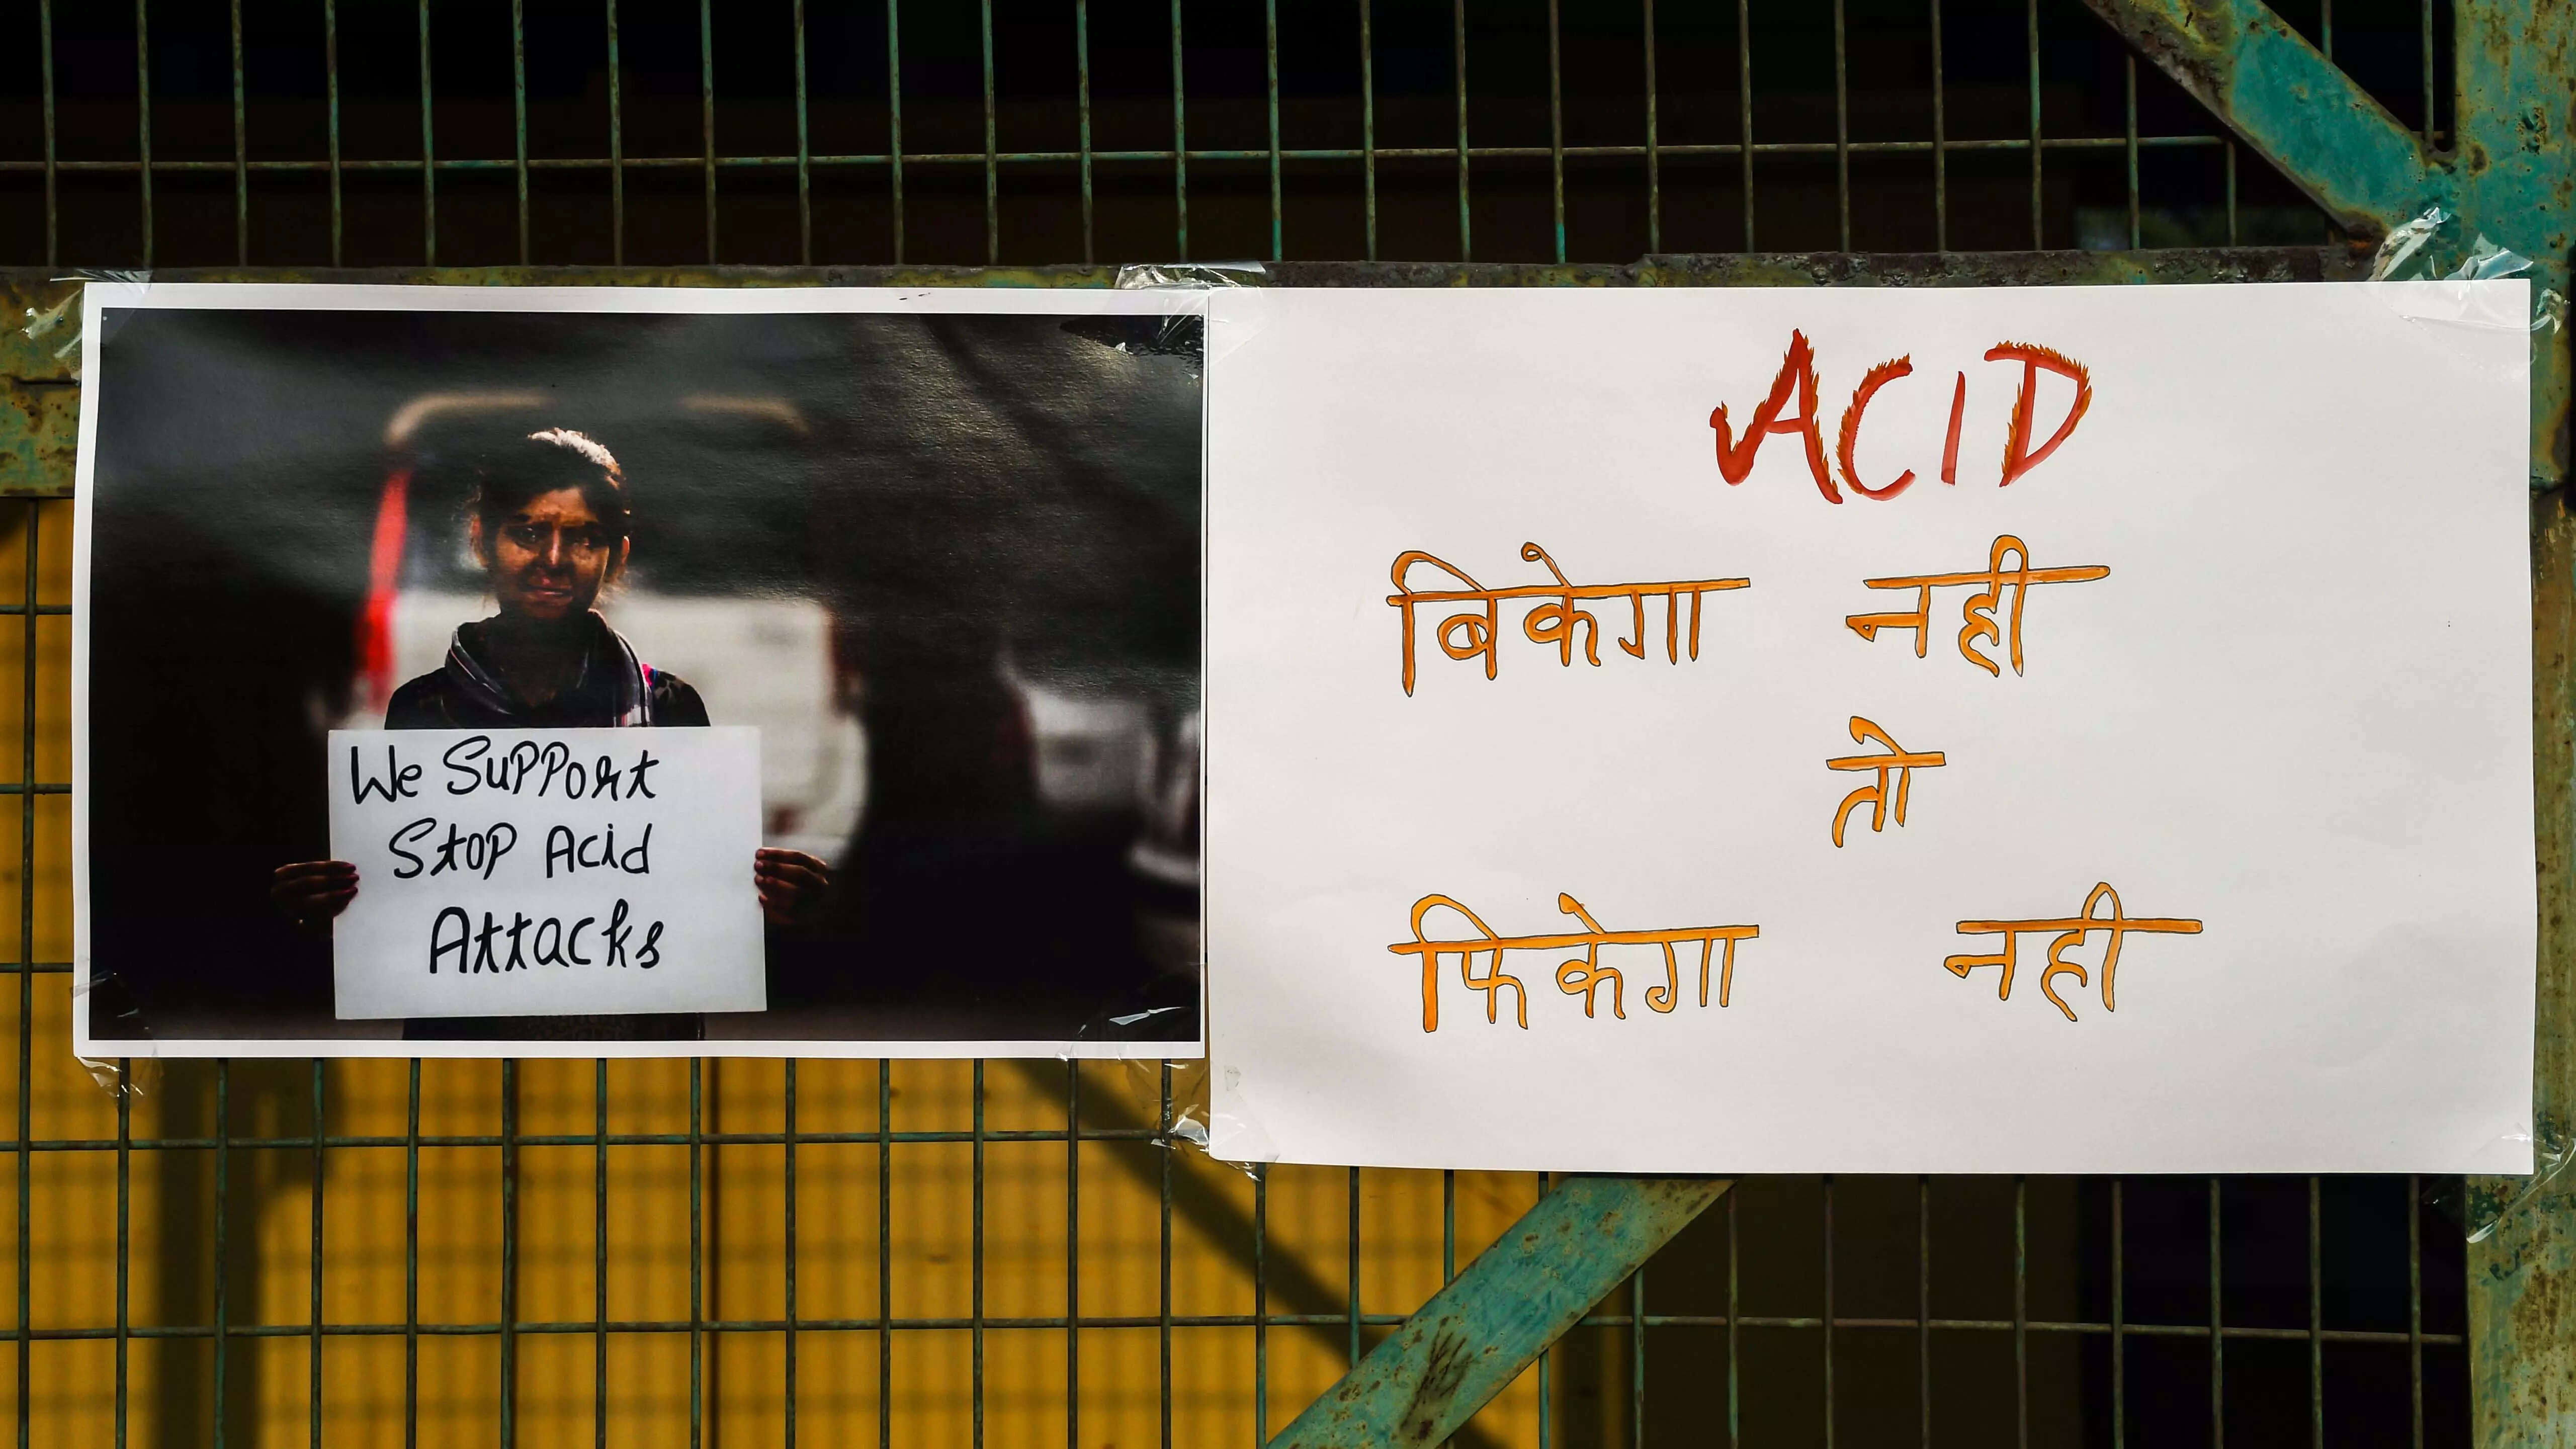 We Support
Stop Acid
Attacks
ACID
बिकेगा नही
तो
फिकेगा नही